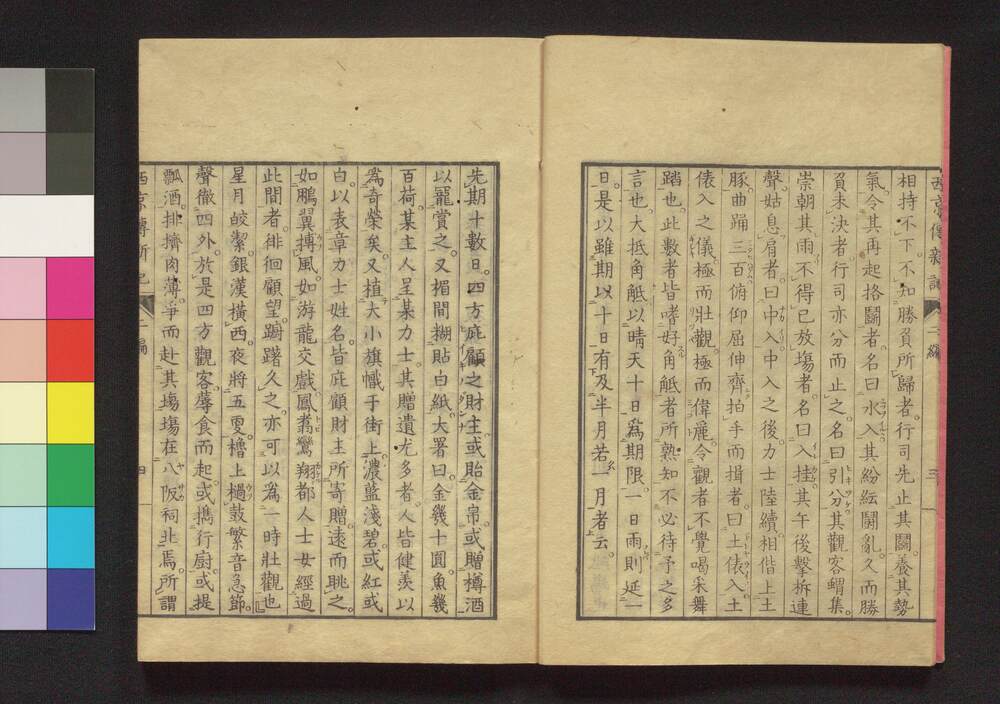 西京傳新記　二編　三
相持不下。不知勝負所歸者。行司先止其鬪。養其勢
氣。令其再起挌鬪者。名曰水入。其紛紜鬪亂。久而勝
負未決者。行司亦分而止之。名曰引分。其觀客蝟集。
崇朝其雨。不得已放塲者。名曰入掛。其午後擊柝連
聲。姑息肩者。曰中入。中入之後。力士陸續相偕上土
豚。曲踊三百。俯仰屈伸。齊拍手而揖者。曰土俵入。土
俵入之儀。極而壯觀。極而偉麗。令觀者不覺喝采舞
踏也。此數者皆嗜好角觝者所熟知。不必待予之多
言也。大抵角觝以晴天十日爲期限。一日雨則延一
日。是以雖期以十日有及半月若一月者云。
先期十數日。四方庇顧之財主。或貽金帛。或贈樽酒
以寵賞之。又楣間糊貼白紙。大署曰。金幾十圓。魚幾
百荷。某主人呈某力士。其贈遺尤多者。人皆健羨以
爲奇榮矣。又植大小旗幟于街上。濃藍淺碧。或紅或
白。以表章力士姓名。皆庇顧財主所寄贈。遠而眺之。
如鵬翼搏風。如游龍交戲。鳳翥鸞翔。都人士女經過
此間者。徘徊顧望。蹰躇久之。亦可以爲一時壯觀也
星月皎潔。銀漢橫西。夜將五更。櫓上撾鼓。繁音急節。
聲徹四外。於是四方觀客。蓐食而起。或擕行廚。或提
瓢酒。排擠肉薄。爭而赴其塲。塲在八阪祠北焉。所謂
西京傳新記　二編　四